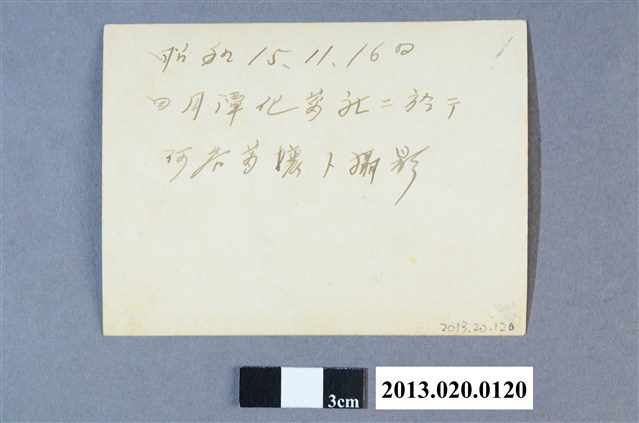 昭和15.11.16日
日月潭化蕃社ニ於テ
蕃孃ト攝影
2013.20.120
3cm
2013.020.0120